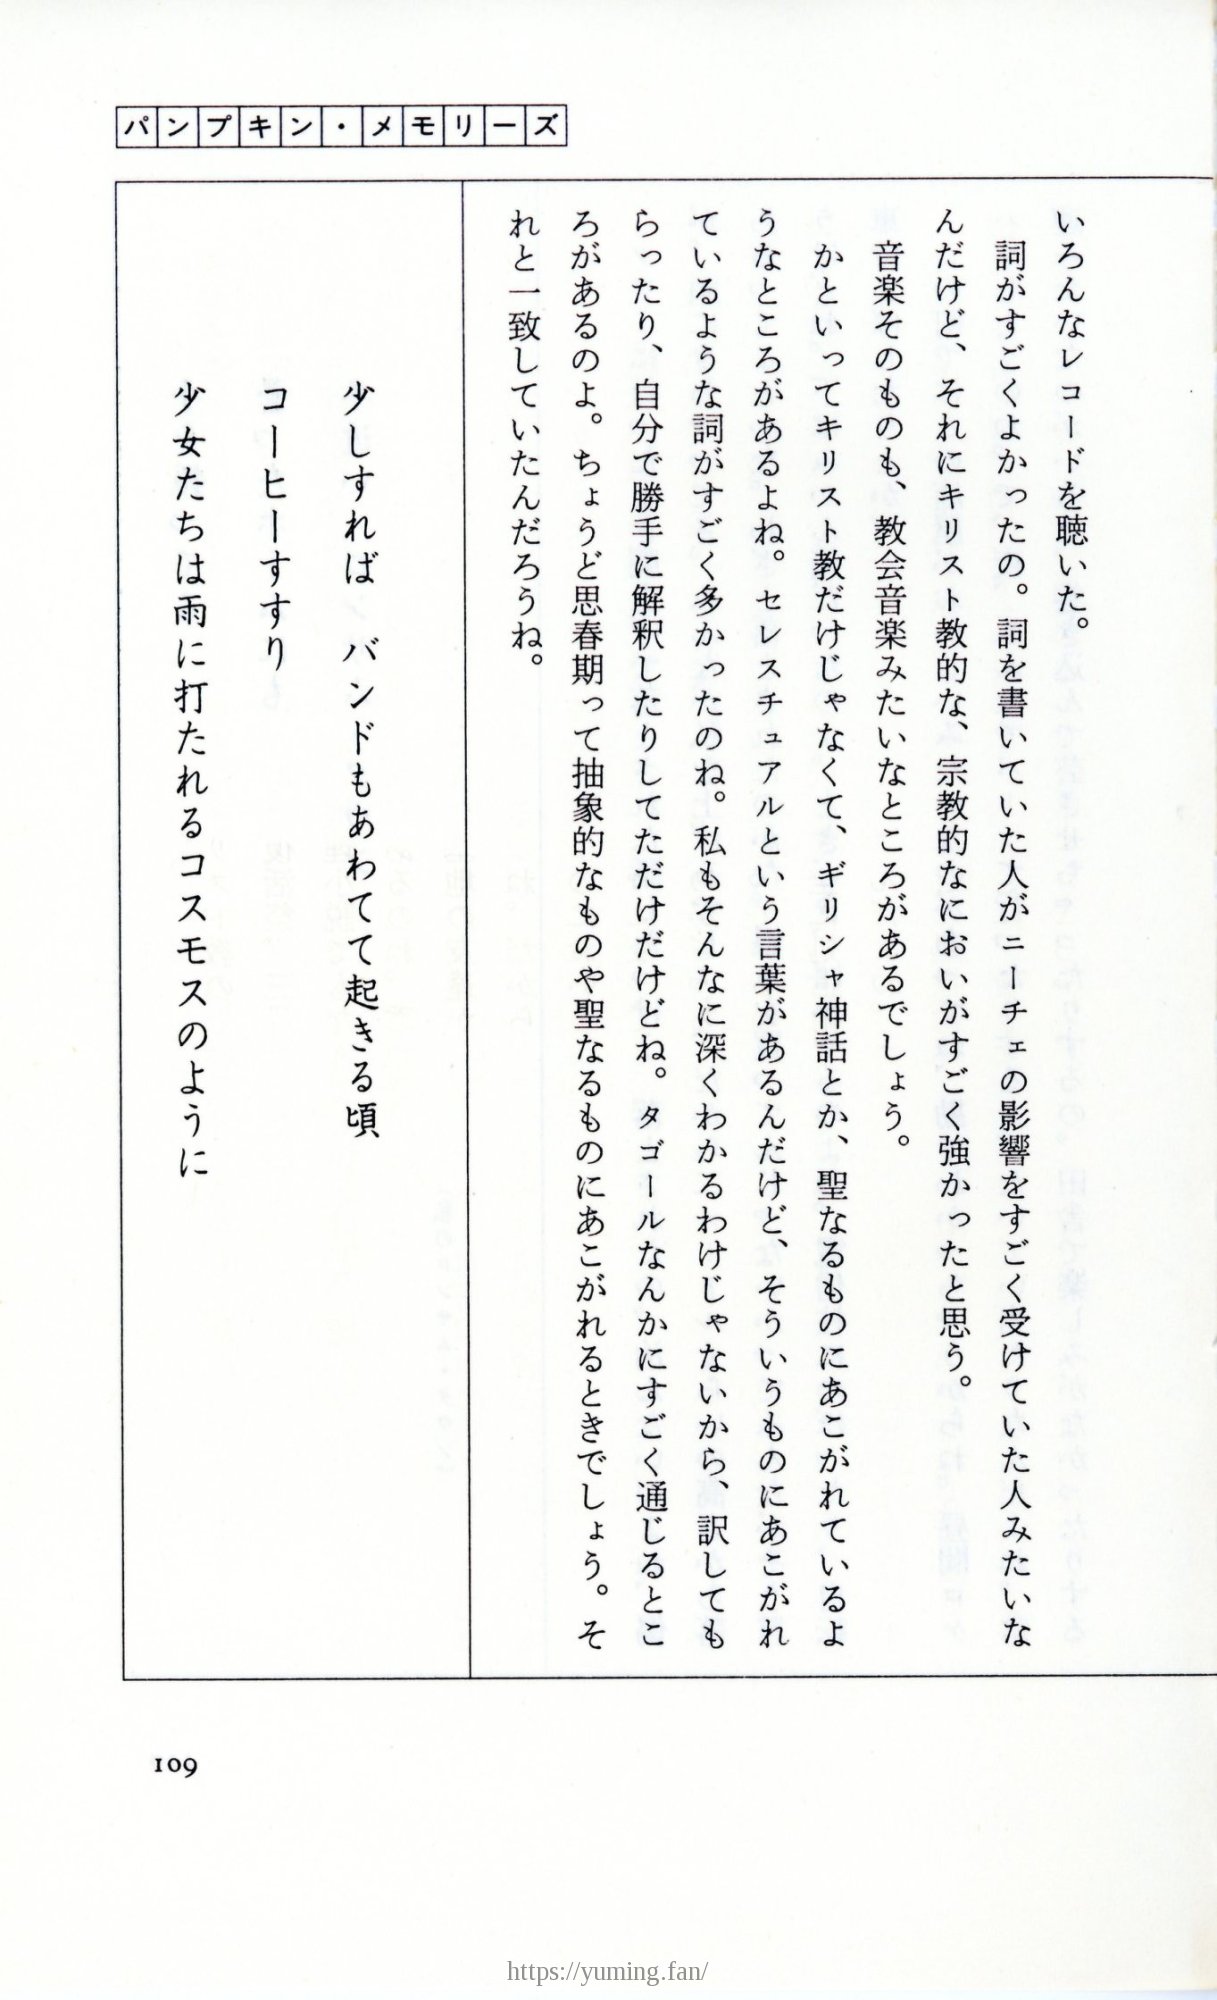 パンプキン・メモリーズ
いろんなレコードを聴いた。
詞がすごくよかったの。詞を書いていた人がニーチェの影響をすごく受けていた人みたいな
んだけど、それにキリスト教的な、宗教的なにおいがすごく強かったと思う。
音楽そのものも、教会音楽みたいなところがあるでしょう。
かといってキリスト教だけじゃなくて、ギリシャ神話とか、聖なるものにあこがれているよ
うなところがあるよね。セレスチュアルという言葉があるんだけど、そういうものにあこがれ
ているような詞がすごく多かったのね。私もそんなに深くわかるわけじゃないから、訳しても
らったり、自分で勝手に解釈したりしてただけだけどね。タゴールなんかにすごく通じるとこ
ろがあるのよ。ちょうど思春期って抽象的なものや聖なるものにあこがれるときでしょう。そ
れと一致していたんだろうね。
少しすれば　バンドもあわてて起きる頃
コーヒーすすり
少女たちは雨に打たれるコスモスのように
109
https://yuming.fan/